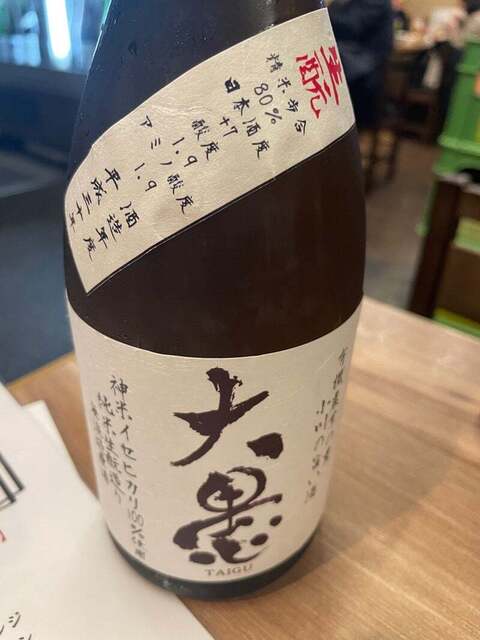 生酛
精米歩合
80%
日本酒度
+7
酸度
1.9
アミノ酸度
1.9
酒造年度
平成三十年
小川の旨い酒
大愚
TAIGU
神米イセヒカリ100%使用
純米生酛造り